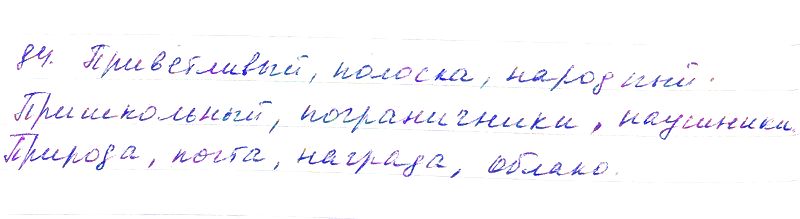 84. Приветливый, полоска, народный.
Пришкольный, пограничники, наушники.
Природа, почта, награда, облако.